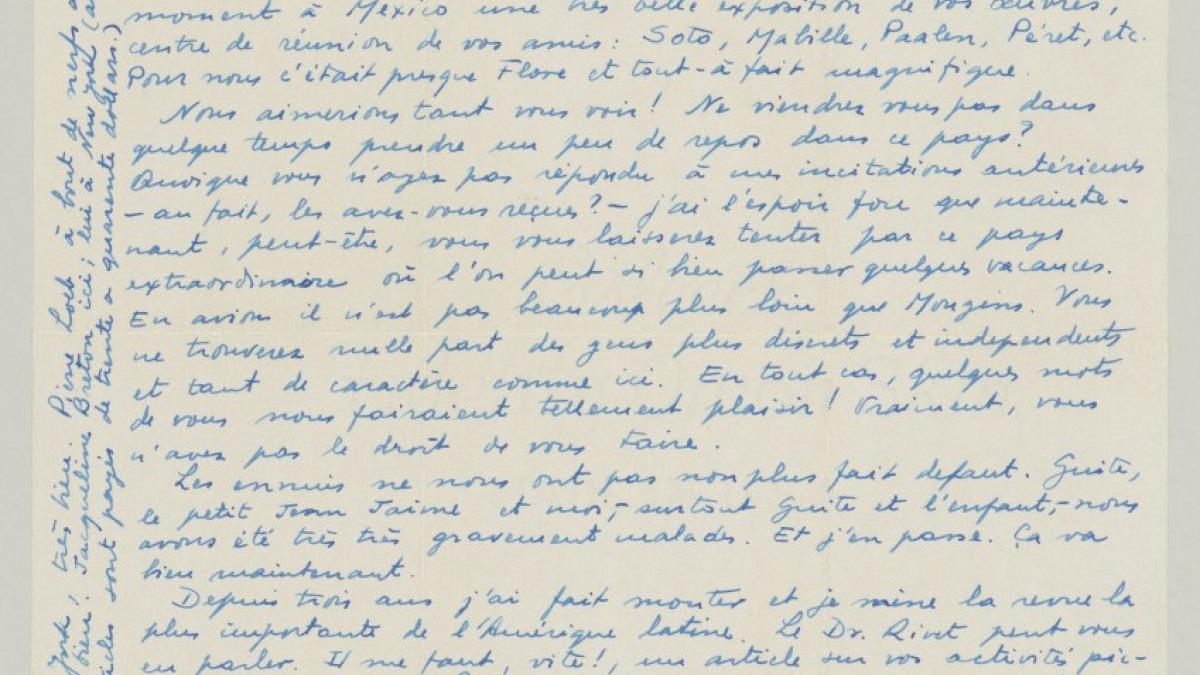 moment à Mexico une très belle exposition de vos œuvres,
centre de réunion de vos amis: Soto, Mabille, Paalen, Péret, etc.
Pour nous c'était presque Flore et tout-à fait magnifique.
Nous aimerions tant vous voir! Ne viendrez vous pas dans
quelque temps prendre un peu de repos dans ce pays?
Quoique vous n'ayez pas répondu à mes incitations antérieures
- au fait, les avez-vous reçues? - j'ai l'espoir fou que mainte-
nant, peut-être, vous vous laisserez tenter par ce pays
extraordinaire où l'on peut si bien passer quelques vacances.
En avion il n'est pas beaucoup plus loin que Mougins. Vous
ne trouverez nulle part des gens plus discrets et independents
et tant de caractère comme ici. En tout cas, quelques mots
de vous nous fairaient tellement plaisir! Vraiment, vous
n'avez pas le droit de vous taire.
Les ennuis ne nous ont pas non plus fait defaut. Guite,
le petit Jean Jaime et moi, - surtout Guite et l'enfant, - nous
avons été très très gravement malades. Et j'en passe. Ça va
bien maintenant.
Depuis trois ans j'ai fait monter et je mène la revue la
plus importante de l'Amérique latine. Le Dr. Rivet peut vous
en parler. Il me faut, vite!, un article sur vos activités pic-
York, très bien. Pierre Loeb à bout de nerfs
bien! Jacqueline Breton ici; lui à New York
sont payés de trente a quarente dollars.)